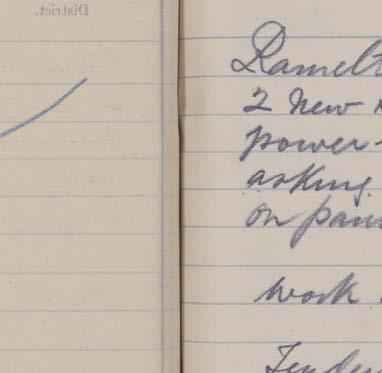 District.
Ramelt
2 new
power-
asking
on
work
Tender